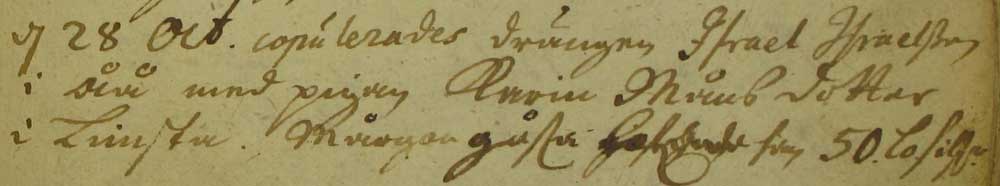 d 28 Oct. copulerades drängen Israel Israelsson
i åå med pigan Karin Månsdotter
i Limsta. Morgongåfva han 50. lod silfr